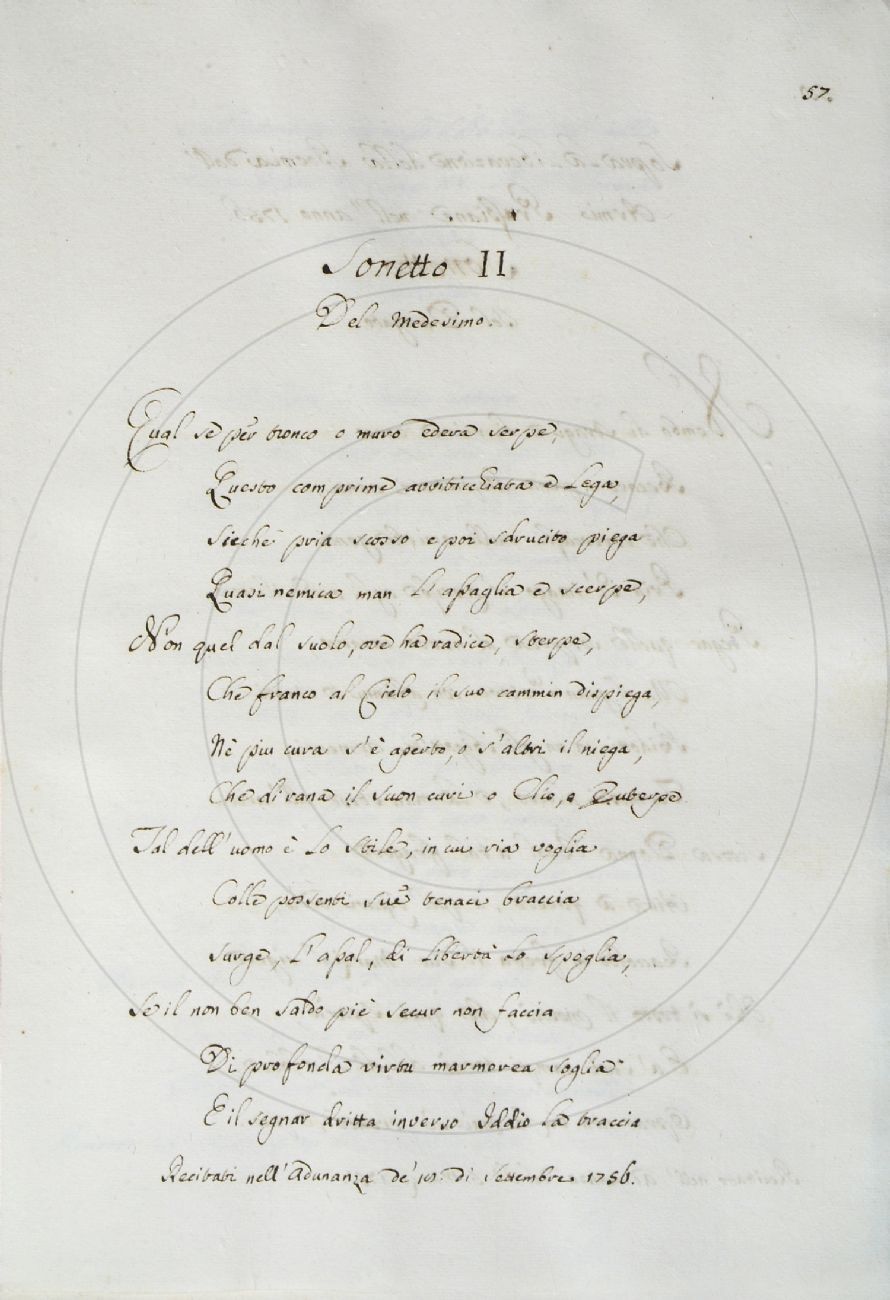 57.
Sonetto II
Del Medesimo.
Qual se per tronco o muro edera serpe,
Questo comprime avviticchiata e Lega,
Sicchè pria scosso e poi sdrucito piega
Quasi nemica man L'assaglia e scerpe,
Non quel dal suolo, ove ha radice, sterpe,
Che franco al Cielo il suo cammin dispiega,
Nè piu cura s'è aperto, o s'altri il niega,
Che di rana il suon curi o Clio, o Euterpe
Tal dell'uomo è Lo stile, in cui ria voglia
Colle possenti sue tenaci braccia
Surge, L'assal, di Libertà Lo spoglia,
Se il non ben saldo piè secur non faccia
Di profonda virtu marmorea soglia
E il segnar dritta inverso Iddio La traccia
Recitati nell'Adunanza de' 19. di Settembre 1756.